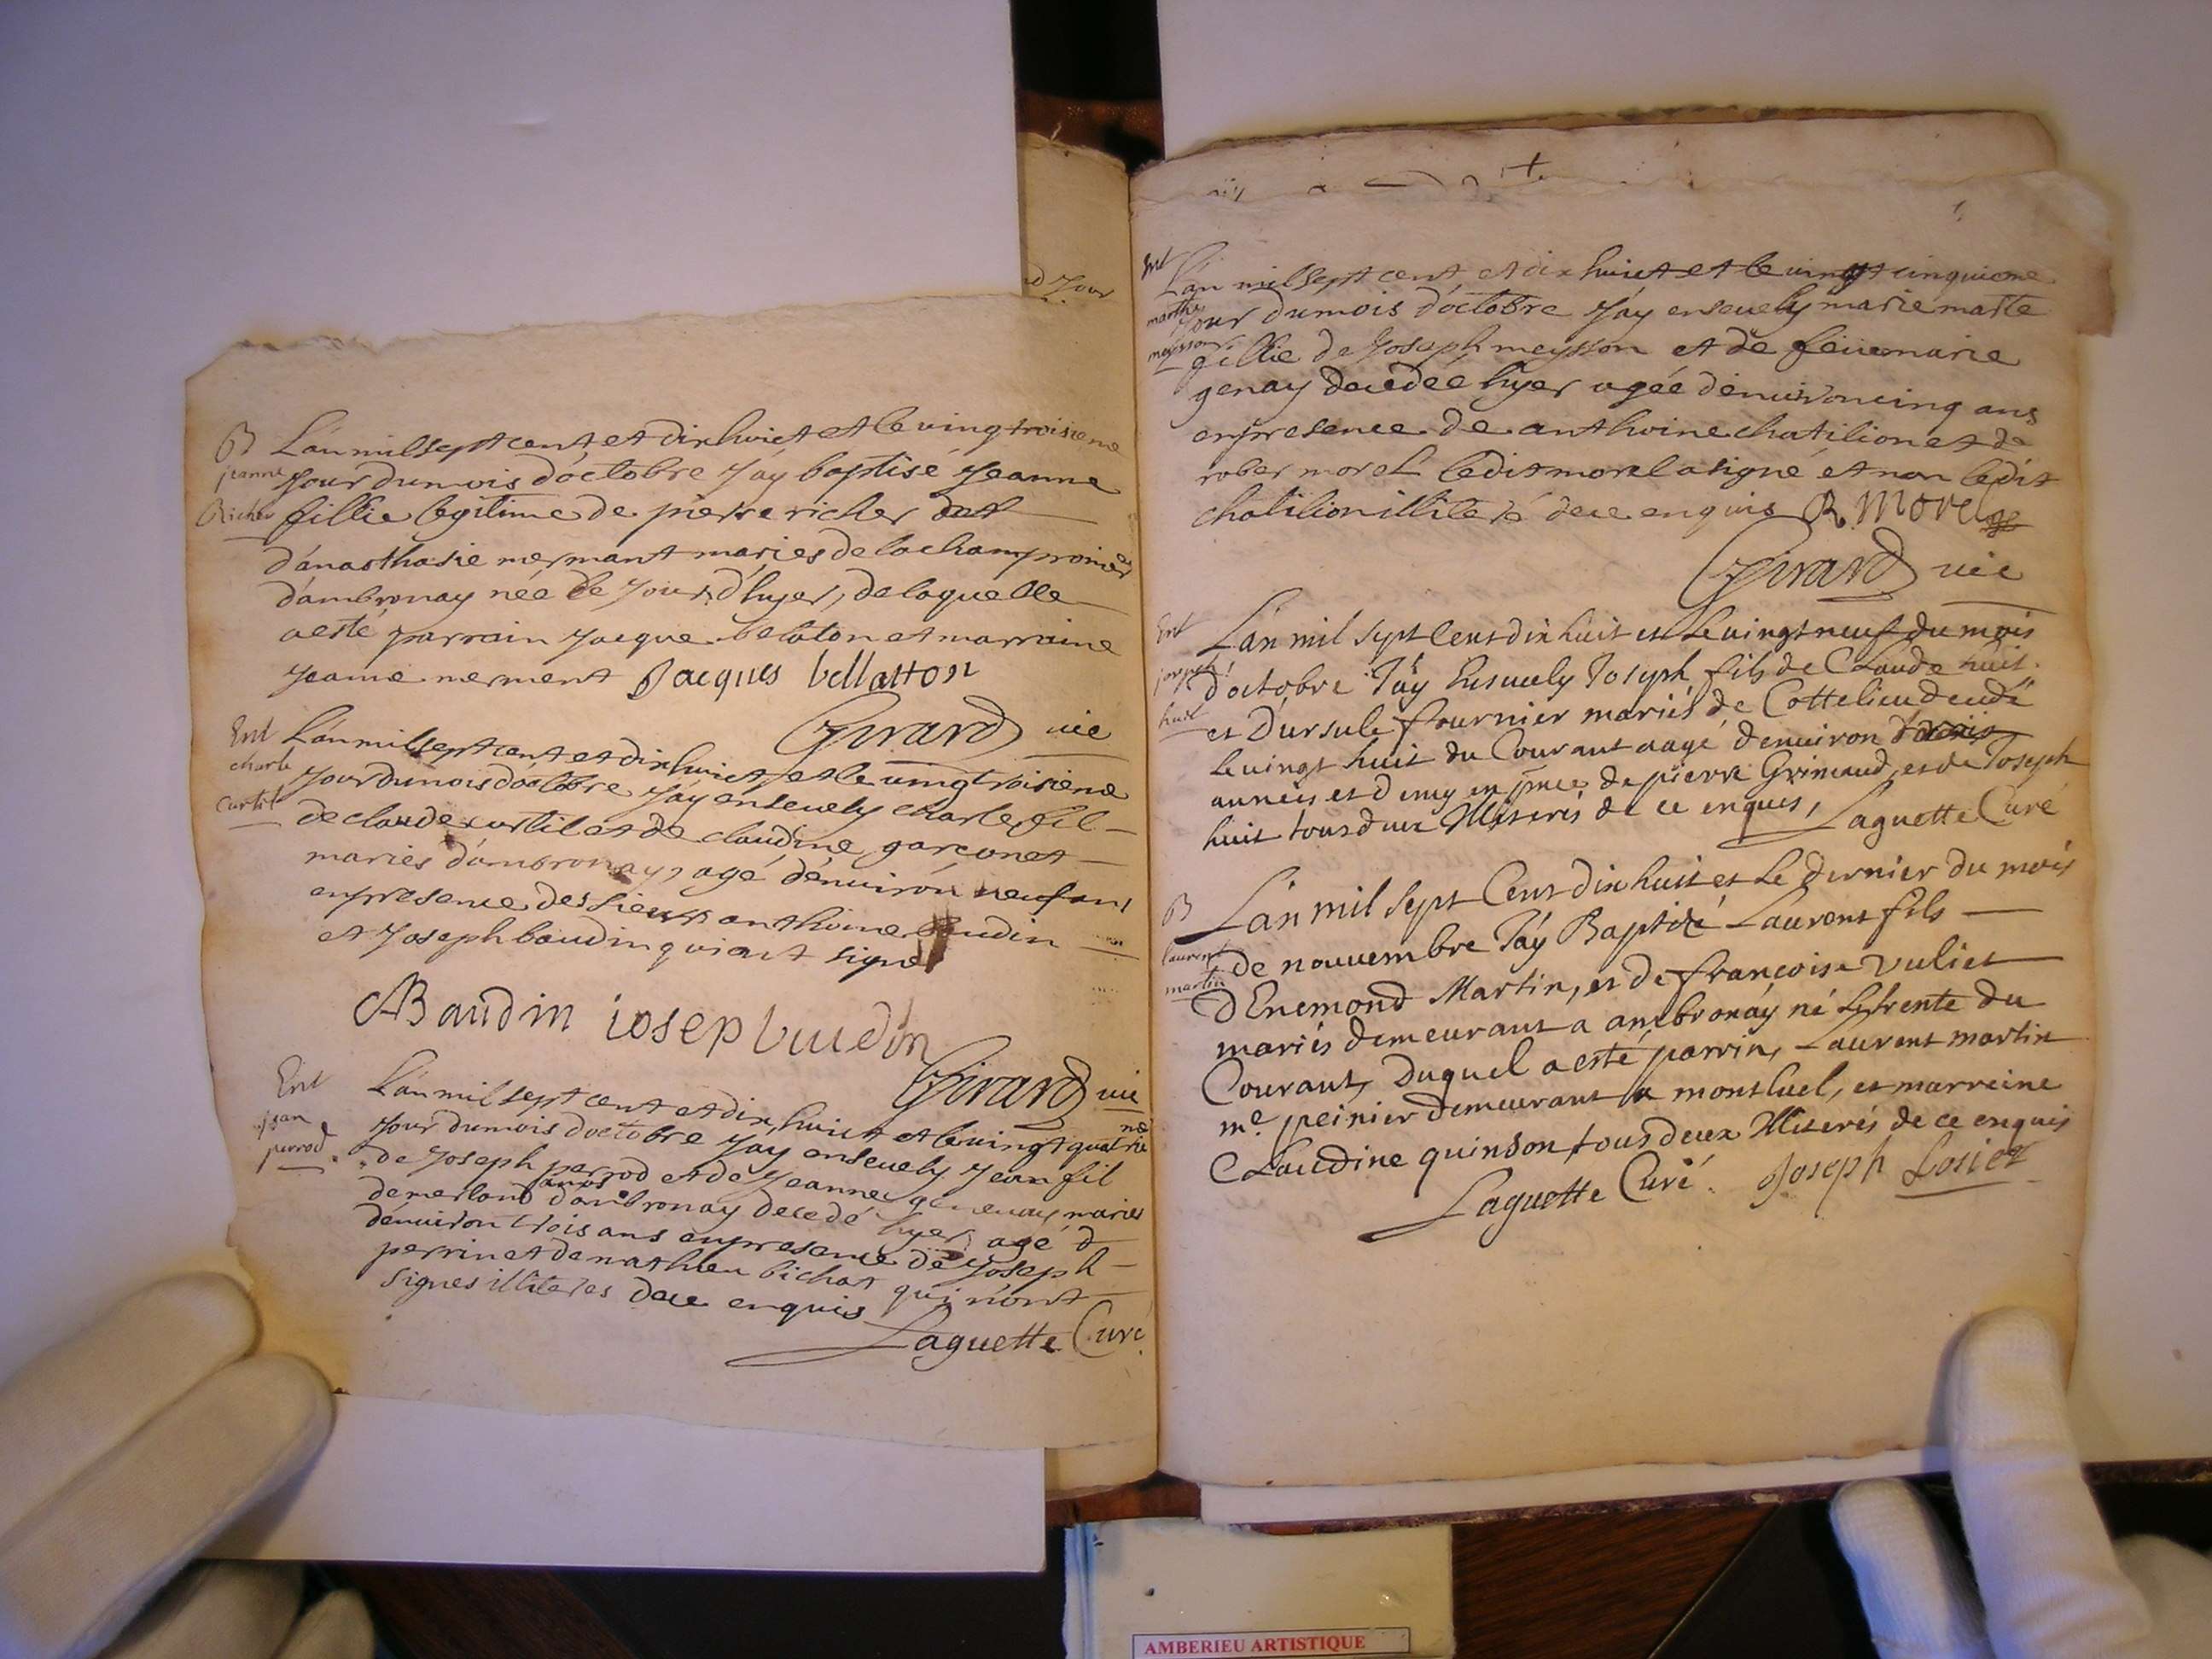 B
jeanne
Richer
L'an mil sept cent et dix huict et le ving troisieme
jour du mois d'octobre j'ay baptisé jeanne
fillie legitime de pierre richer
d'anasthasie mermant maries de la
d'ambronay née le jour d'hyer, de laquelle
a esté parrain jacque belaton et marraine
jeanne merment Jacques bellatton
Girard vic
Ent
charle
curtil
L'an mil sept cent et dix huict et le vingt troisieme
jour du mois d'octobre j'ay ensevely charle fil
de claude curtil et de claudine garconet
maries d'ambronay, agé d'environ neuf ans
en presence des sieurs anthoine baudin
et joseph baudin qui ont signe
ABaudin iosep buudin
Girard vic
Ent
jean
perrod
L'an mil sept cent et dix huict et le vingt quatrie
me
jour du mois d'octobre j'ay ensevely jean fil
de joseph perrod et de jeanne genevay maries
de merland d'ambronay decedé hyer agé d
d'environ trois ans en presence de joseph
perrin et de mathieu bichat qui n'ont
signes illiteres de ce enquis
Laguette Curé
d jour
Ent
marthe
meysson
L'an mil sept cent et dix huict et le vingt cinquieme
jour du mois d'octobre j'ay ensevely marie marte
fillie de joseph meysson et de feue marie
genay decedée hyer agée d'environ cinq ans
en presence de anthoine chatilion et de
rober morel ledit morel a signé et non ledit
chatilion illiteré de ce enquis R. Morel
Girard vic
Ent
joseph
huit
L'an mil sept cent dix huit et le vingt neuf du mois
d'octobre j'ay ensevely Joseph fils de Claude huit
et D'ursule fournier mariés de Cottelieu decedé
le vingt huit du Courant aagé d'environ trois
années et demy en pnce de pierre Grimaud, et de Joseph
huit tous deux illiterés de ce enquis, Laguette Curé
B
laurent
martin
L'an mil sept Cent dix huit et le dernier du mois
de nouvembre j'ay Baptizé Laurent fils
d'Enemond Martin, et de françoise vuliet
mariés demeurant a ambronay né le trente du
Courant, duquel a esté parrin, Laurent martin
me peinier demeurant a montluel, et marreine
Claudine quinson tous deux illiterés de ce enquis
Laguette Curé. Joseph Losier
AMBERIEU ARTISTIQUE